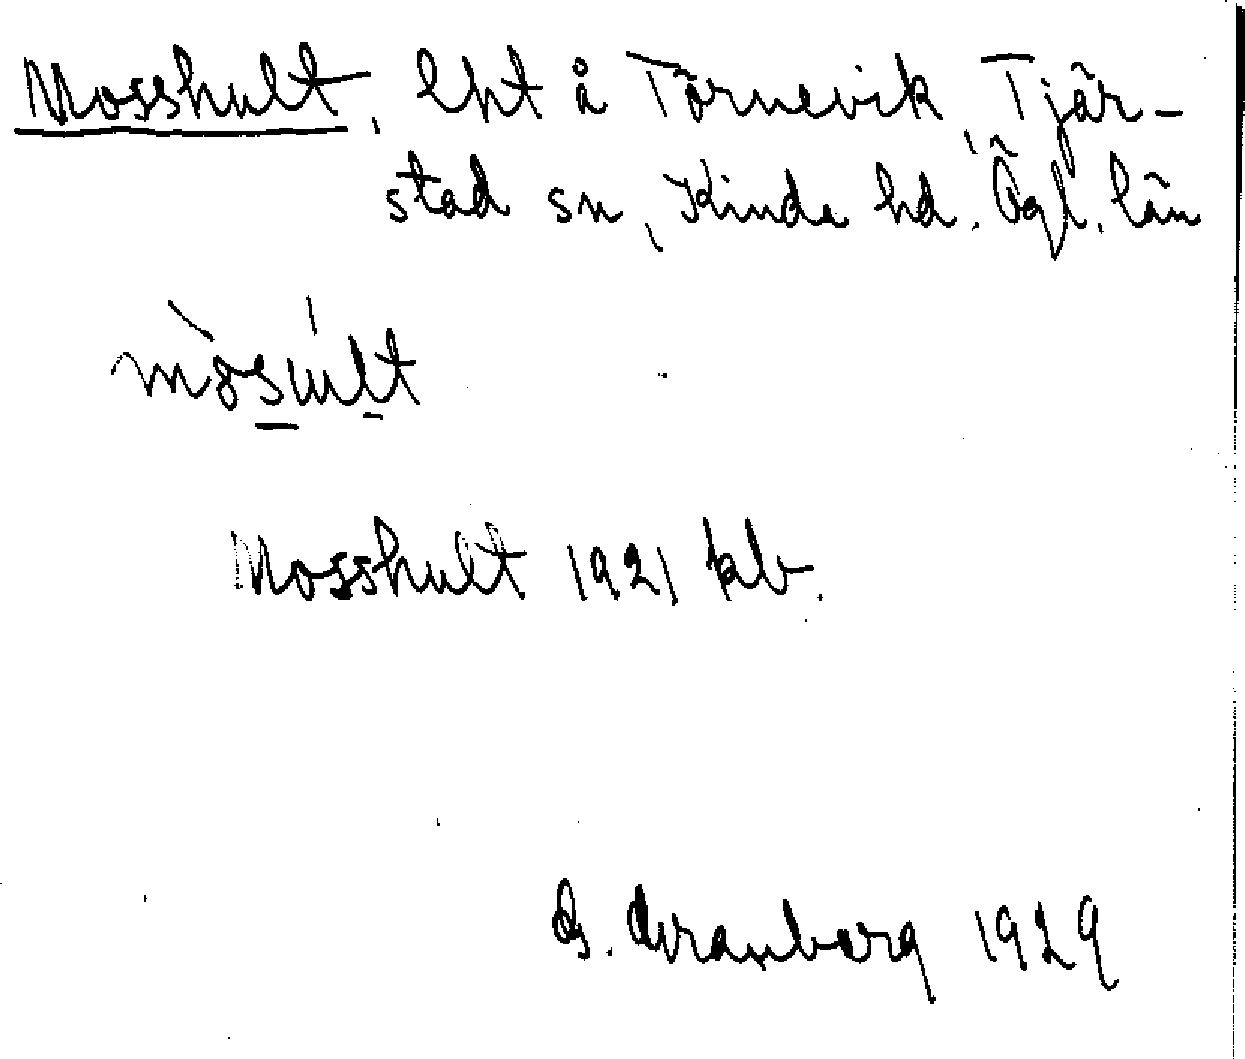 Mosshult, lht å Törnevik, Tjär-
stad sn, Kinda hd. Ögl. län
Mosshult 1921 kb.
G. Franberg 1929